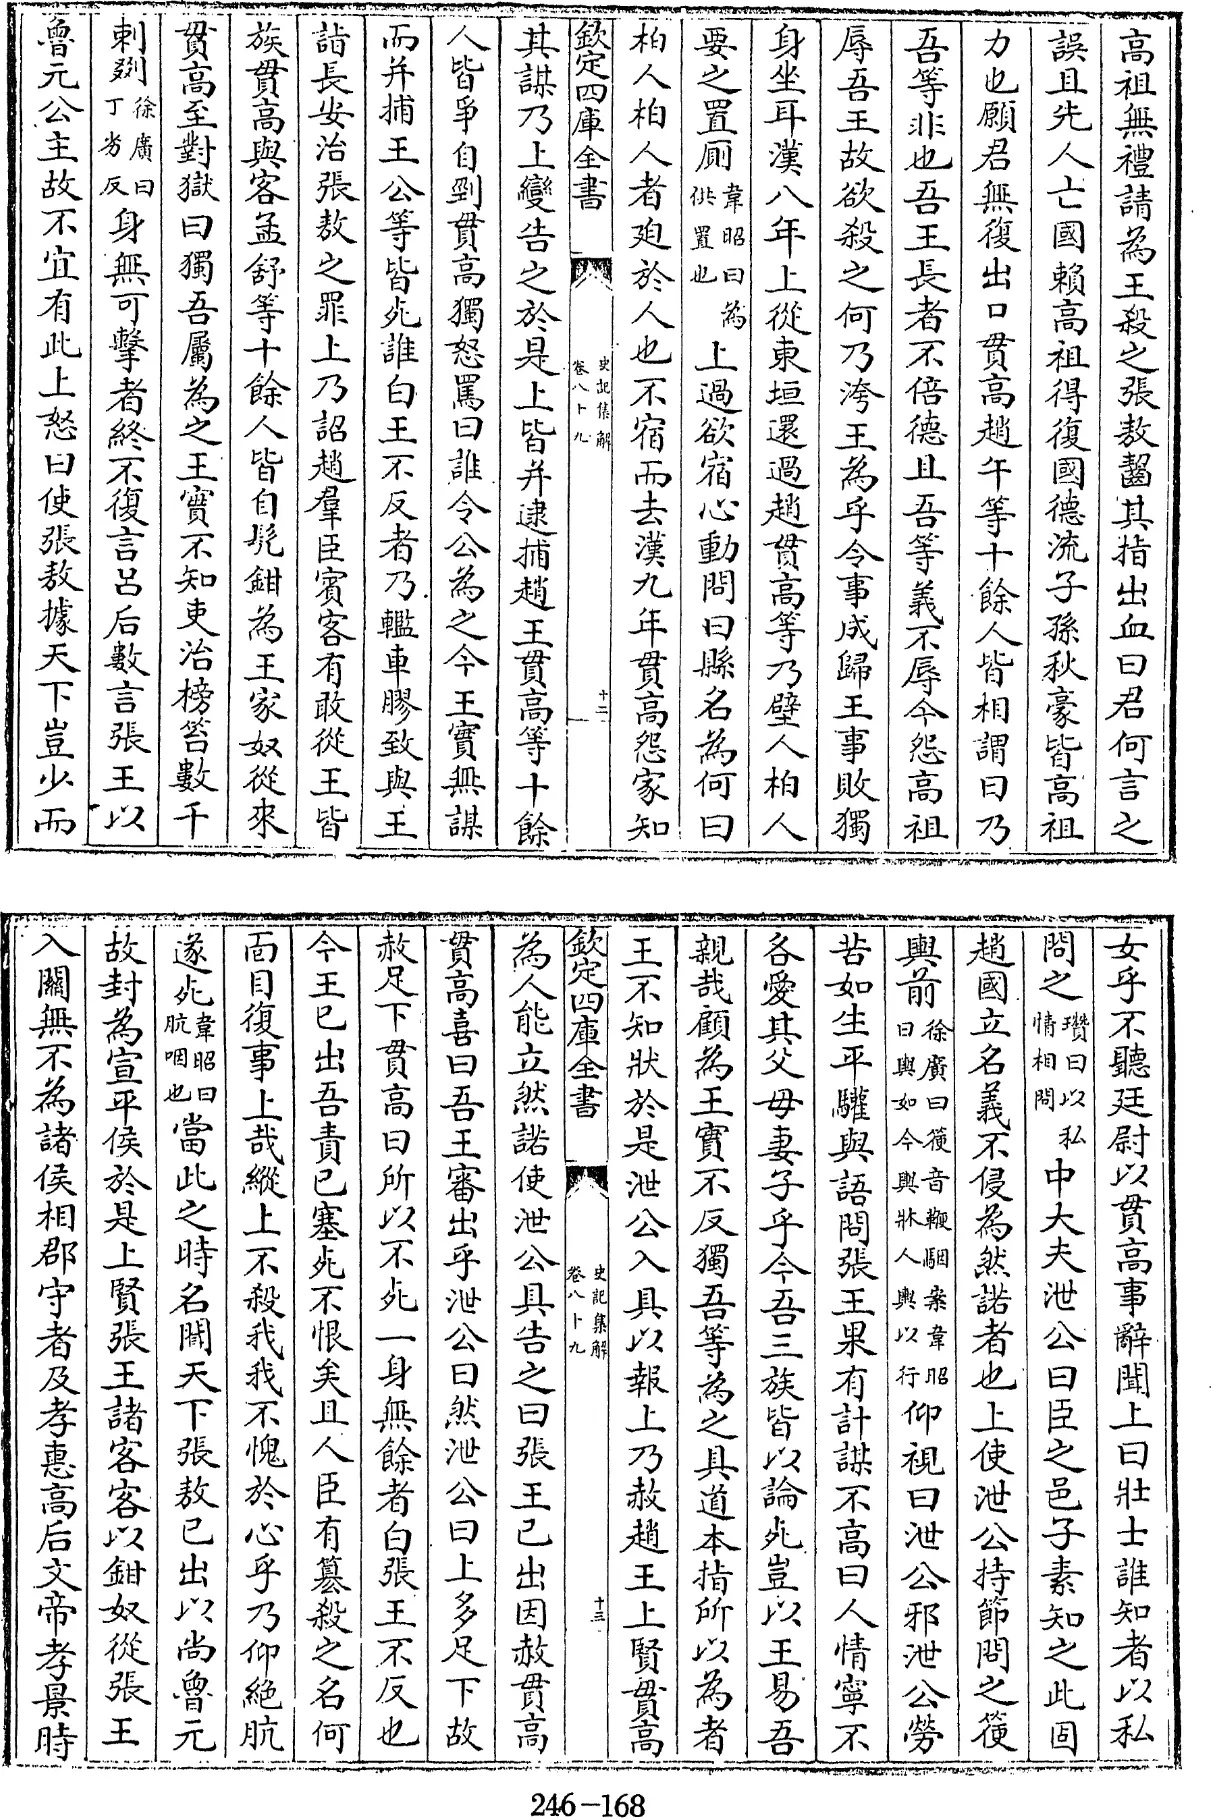 高祖無禮請為王殺之張敖齧其指出血曰君何言之
誤且先人亡國賴高祖得復國德流子孫秋豪皆高祖
力也願君無復出口貫高趙午等十餘人皆相謂曰乃
吾等非也吾王長者不倍德且吾等義不辱今怨高祖
辱吾王故欲殺之何乃洿王為乎令事成歸王事敗獨
身坐耳漢八年上從東垣還過趙貫高等乃壁人柏人
要之置廁韋昭曰為供置也上過欲宿心動問曰縣名為何曰
柏人柏人者迫於人也不宿而去漢九年貫高怨家知
欽定四庫全書 史記集解 卷八十九 十二
其謀乃上變告之於是上皆并逮捕趙王貫高等十餘
人皆爭自剄貫高獨怒罵曰誰令公為之今王實無謀
而并捕王公等皆死誰白王不反者乃轞車膠致與王
詣長安治張敖之罪上乃詔趙羣臣賓客有敢從王皆
族貫高與客孟舒等十餘人皆自髡鉗為王家奴從來
貫高至對獄曰獨吾屬為之王實不知吏治榜笞數千
刺剟徐廣曰丁劣反身無可擊者終不復言呂后數言張王以
魯元公主故不宜有此上怒曰使張敖據天下豈少而
女乎不聽廷尉以貫高事辭聞上曰壯士誰知者以私
問之瓚曰以私情相問中大夫泄公曰臣之邑子素知之此固
趙國立名義不侵為然諾者也上使泄公持節問之箯
輿前徐廣曰箯音鞭駰案韋昭曰輿如今輿牀人輿以行仰視曰泄公邪泄公勞
苦如生平驩與語問張王果有計謀不高曰人情寧不
各愛其父母妻子乎今吾三族皆以論死豈以王易吾
親哉顧為王實不反獨吾等為之具道本指所以為者
王不知狀於是泄公入具以報上乃赦趙王上賢貫高
欽定四庫全書 史記集解 卷八十九 十三
為人能立然諾使泄公具告之曰張王已出因赦貫高
貫高喜曰吾王審出乎泄公曰然泄公曰上多足下故
赦足下貫高曰所以不死一身無餘者白張王不反也
今王已出吾責已塞死不恨矣且人臣有簒殺之名何
面目復事上哉縱上不殺我我不愧於心乎乃仰絕肮
遂死韋昭曰肮咽也當此之時名聞天下張敖已出以尚魯元
故封為宣平侯於是上賢張王諸客客以鉗奴從張王
入關無不為諸侯相郡守者及孝惠高后文帝孝景時
246-168